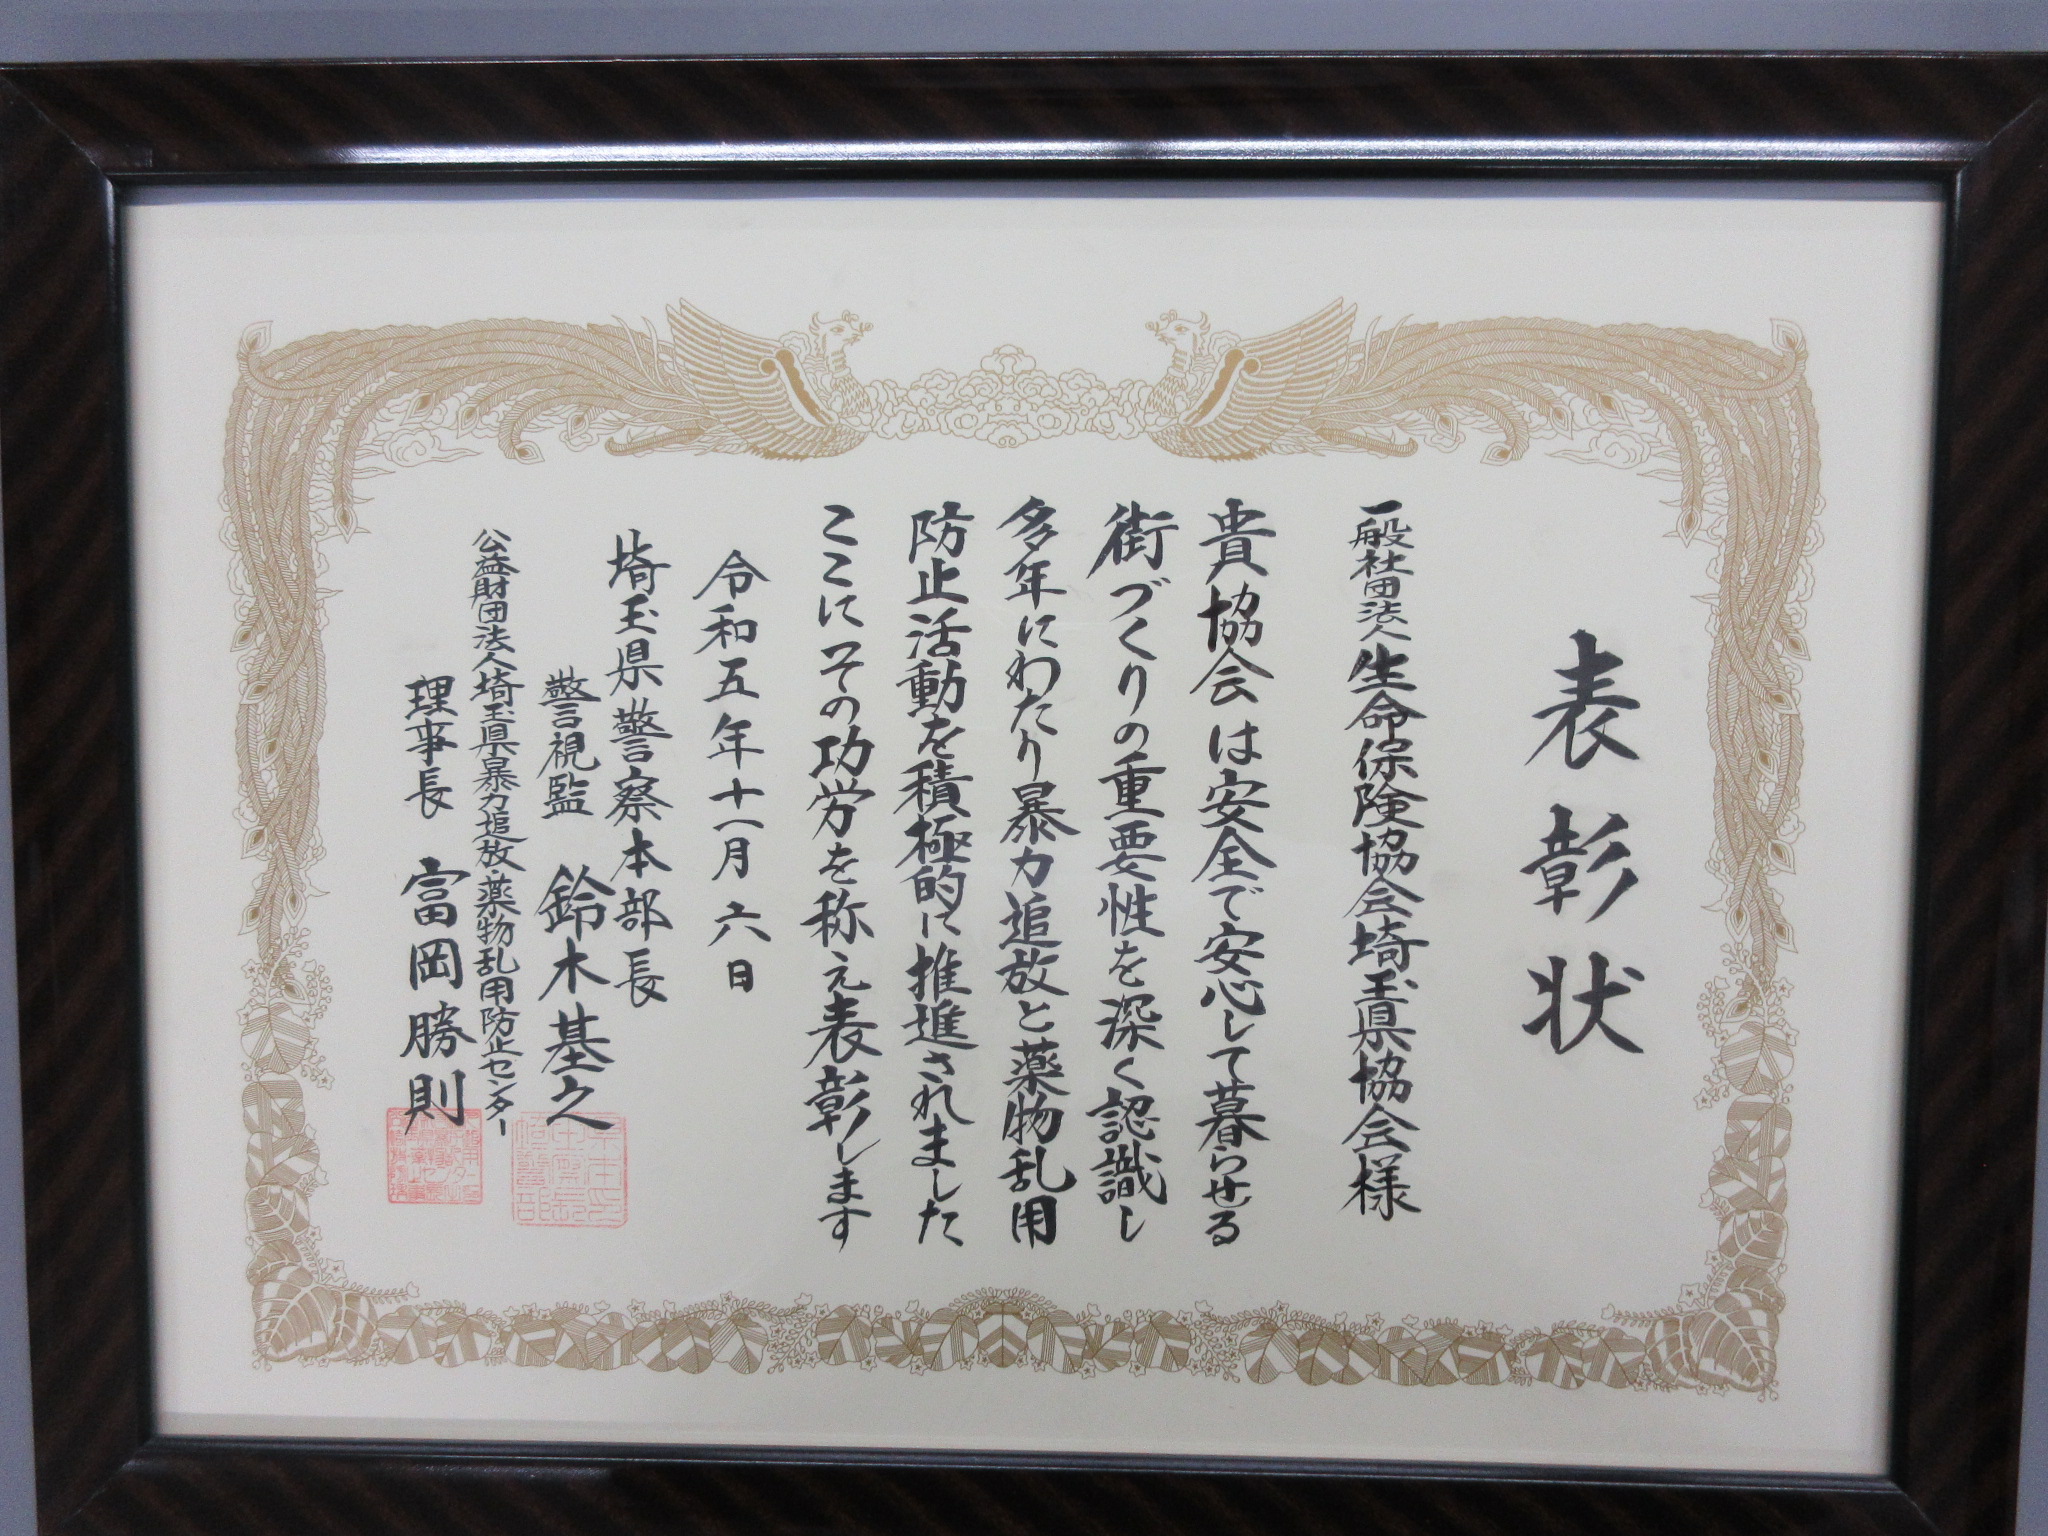 表彰状
一般社団法人生命保険協会埼玉県協会様
貴協会は安全で安心して暮らせる
街づくりの重要性を深く認識し
多年にわたり暴力追放と薬物乱用
防止活動を積極的に推進されました
ここにその功労を称え表彰します
令和五年十一月六日
埼玉県警察本部長
警視監 鈴木基之
公益財団法人埼玉県暴力追放・薬物乱用防止センター
理事長 富岡勝則